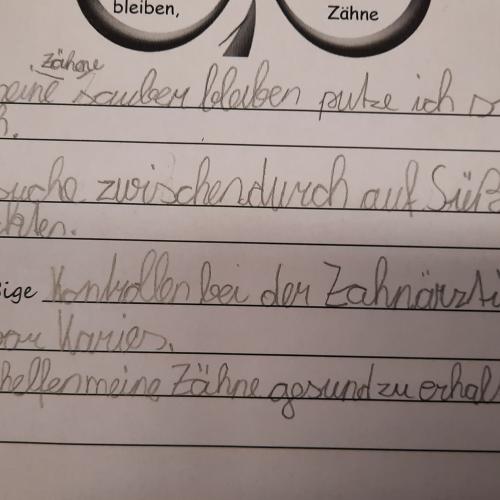 bleiben,
Zähne
Zähne
meine sauber bleiben putze ich
h.
suche zwischendurch auf Süß
ige Kontrollen bei der Zahnärzti
vor Karies.
helfen meine Zähne gesund zu erhal